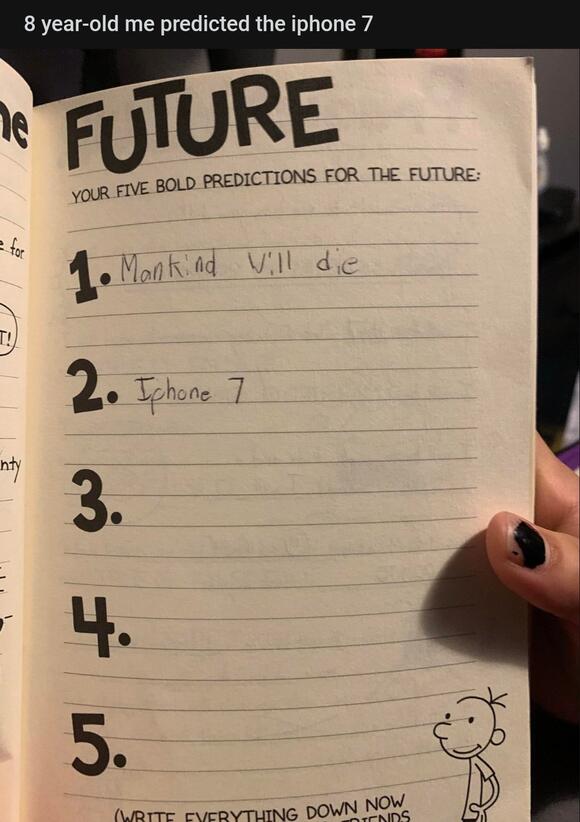 8 year-old me predicted the iphone 7
he
FUTURE
YOUR FIVE BOLD PREDICTIONS FOR THE FUTURE:
e for
1. Mankind Will die
T!
2. Iphone 7
nty
3.
4.
5.
(WRITE EVERYTHING DOWN NOW
FRIENDS